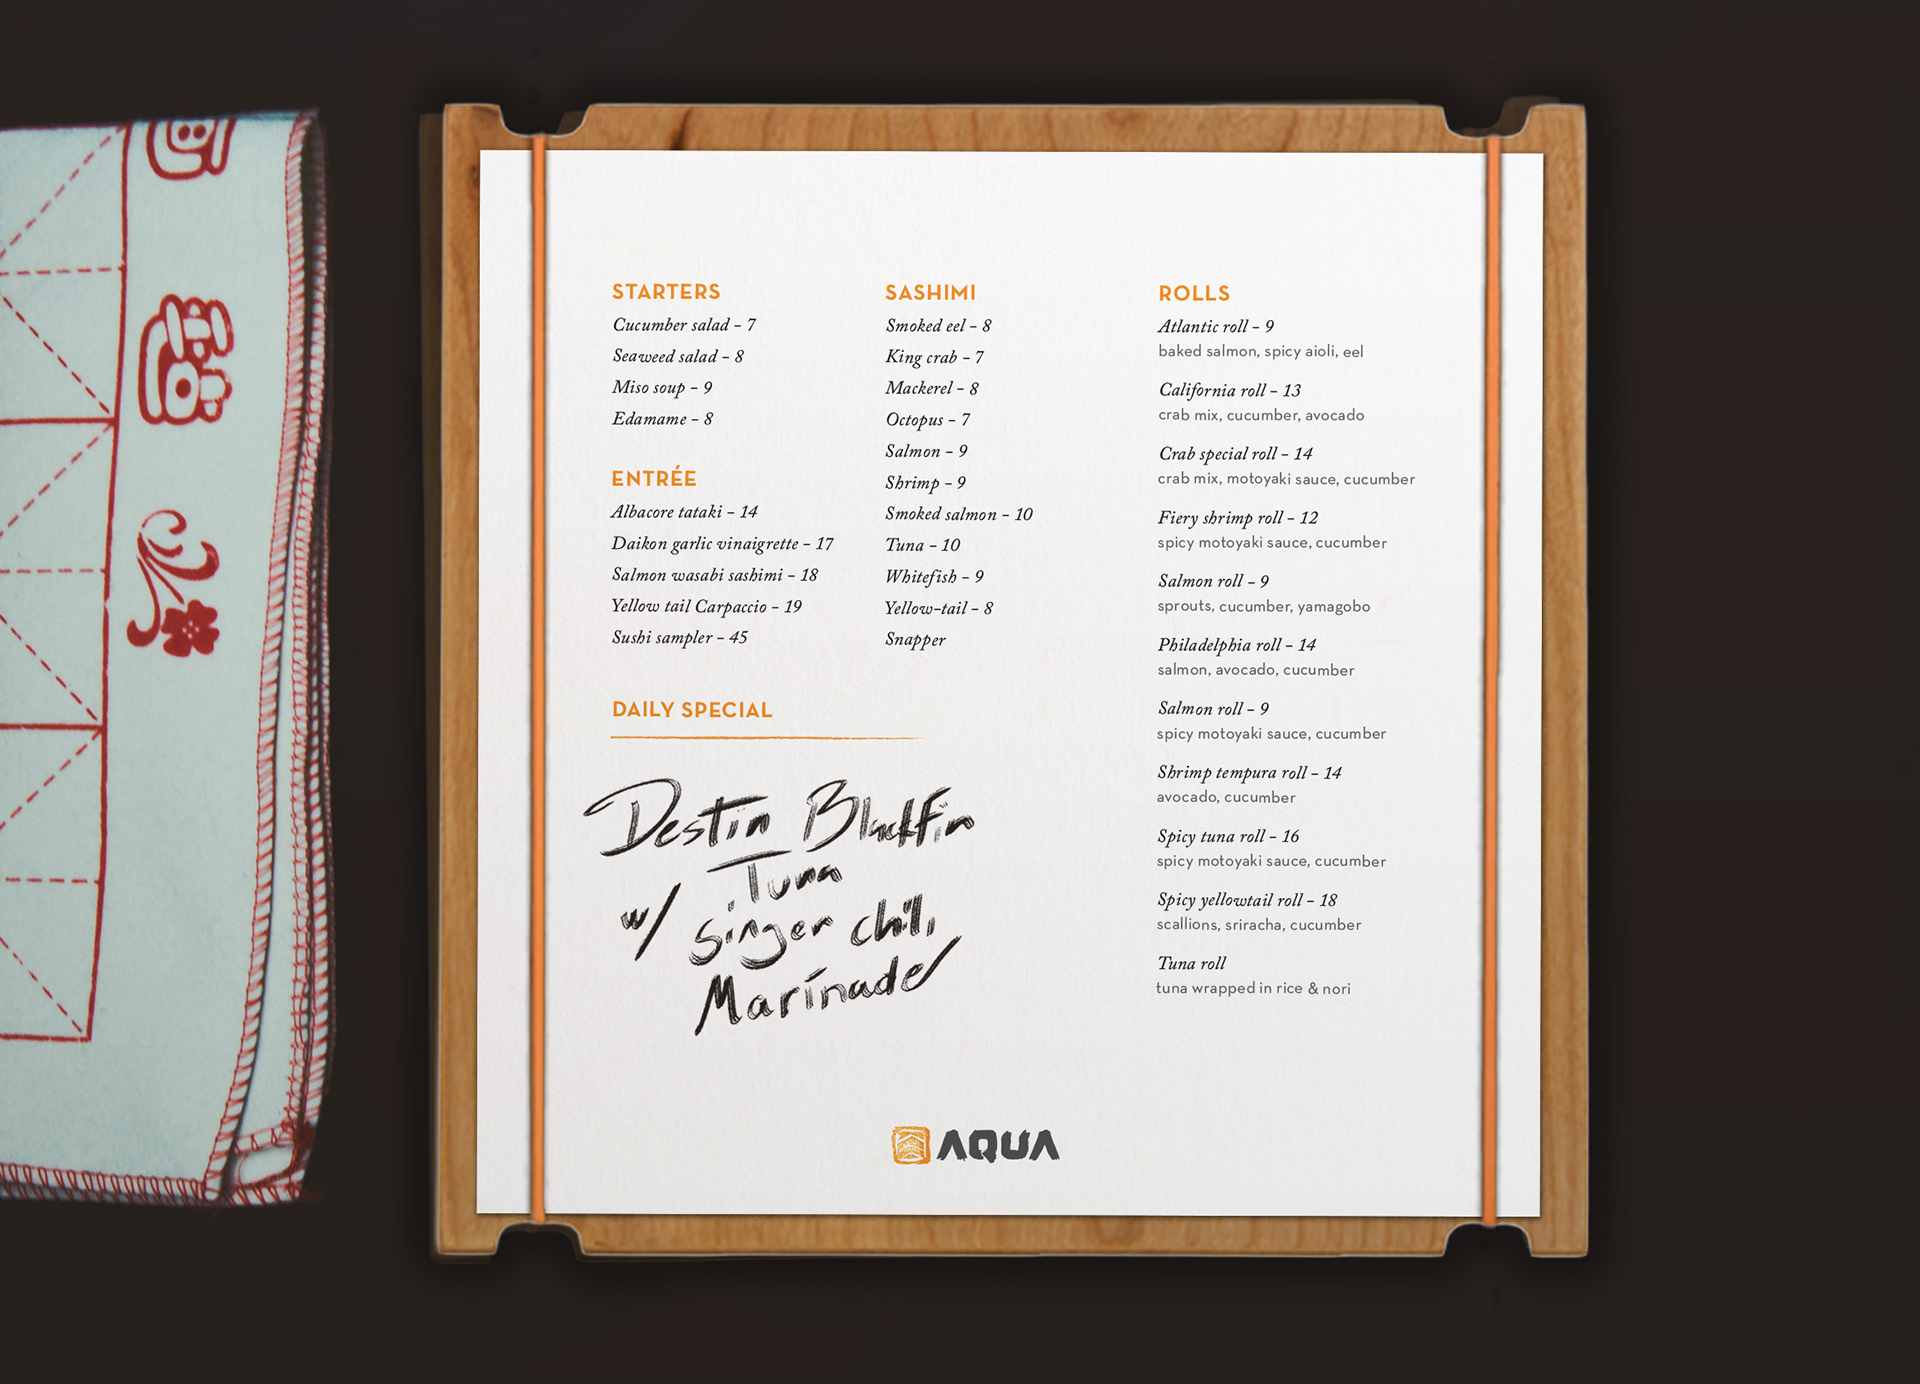 STARTERS
Cucumber salad – 7
Seaweed salad – 8
Miso soup – 9
Edamame – 8
ENTRÉE
Albacore tataki – 14
Daikon garlic vinaigrette – 17
Salmon wasabi sashimi – 18
Yellow tail Carpaccio – 19
Sushi sampler – 45
SASHIMI
Smoked eel – 8
King crab – 7
Mackerel – 8
Octopus – 7
Salmon – 9
Shrimp – 9
Smoked salmon – 10
Tuna – 10
Whitefish – 9
Yellow-tail – 8
Snapper
ROLLS
Atlantic roll – 9
baked salmon, spicy aioli, eel
California roll – 13
crab mix, cucumber, avocado
Crab special roll – 14
crab mix, motoyaki sauce, cucumber
Fiery shrimp roll – 12
spicy motoyaki sauce, cucumber
Salmon roll – 9
sprouts, cucumber, yamagobo
Philadelphia roll – 14
salmon, avocado, cucumber
Salmon roll – 9
spicy motoyaki sauce, cucumber
Shrimp tempura roll – 14
avocado, cucumber
Spicy tuna roll – 16
spicy motoyaki sauce, cucumber
Spicy yellowtail roll – 18
scallions, sriracha, cucumber
Tuna roll
tuna wrapped in rice & nori
DAILY SPECIAL
Destin Blackfin
Tuna
w/ ginger chili
Marinade
AQUA